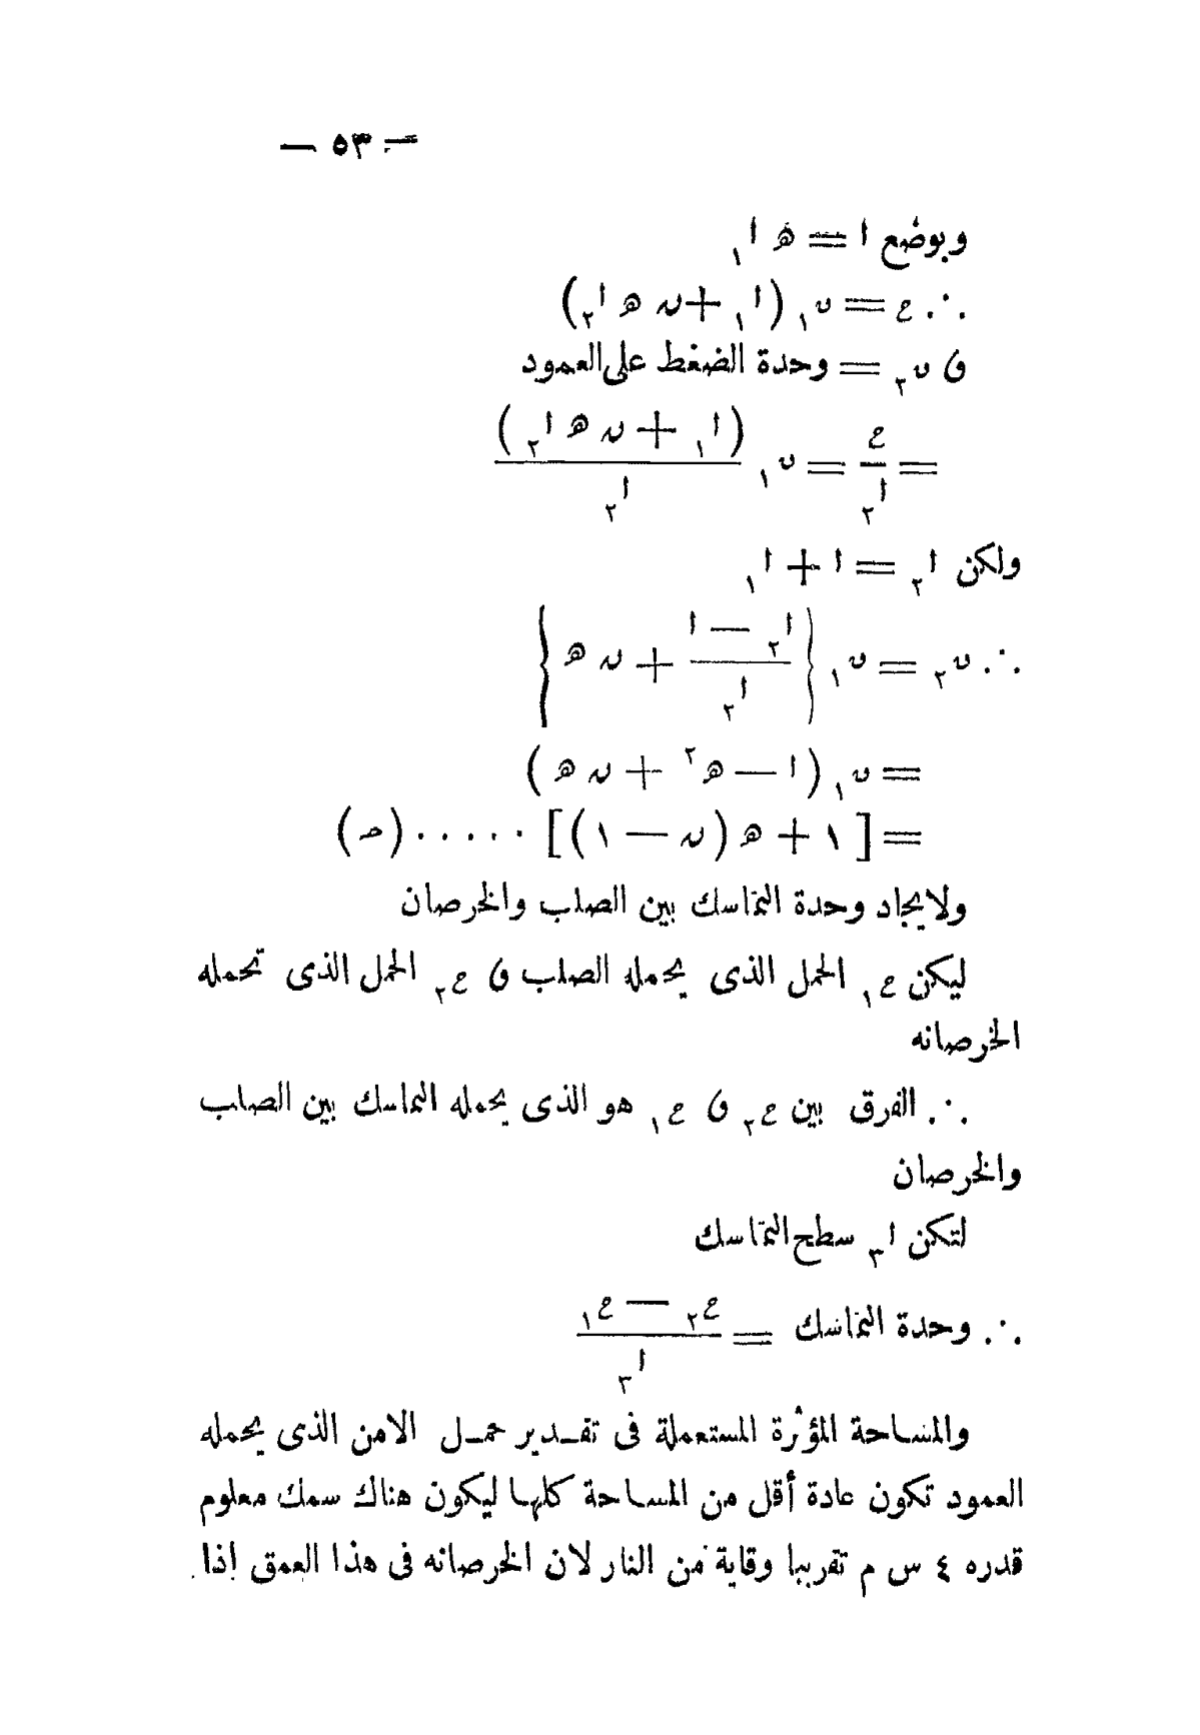 — ٥٣ —
وبوضع ا = ه ا١
∴ ع = ں١ (ا١ + ں ه ا٢)
و ں٢ = وحدة الضغط على العمود
= ع/ا٢ = ں١ (ا١ + ں ه ا٢)/ا٢
ولكن ا٢ = ا + ا١
∴ ں٢ = ں١ {(ا٢ — ا)/ا٢ + ں ه}
= ں١ (ا — ه٢ + ں ه)
= [١ + ه (ں — ١)] ..... (ص)
ولايجاد وحدة التماسك بين الصلب والخرصان
ليكن ع١ الحمل الذى يحمله الصلب و ع٢ الحمل الذى تحمله
الخرصانه
∴ الفرق بين ع٢ و ع١ هو الذى يحمله التماسك بين الصلب
والخرصان
لتكن ا٣ سطح التماسك
∴ وحدة التماسك = (ع٢ — ع١)/ا٣
والمساحة المؤثرة المستعملة فى تقـدير حمـل الامن الذى يحمله
العمود تكون عادة أقل من المساحة كلها ليكون هناك سمك معلوم
قدره ٤ س م تقريبا وقاية من النار لان الخرصانه فى هذا العمق اذا